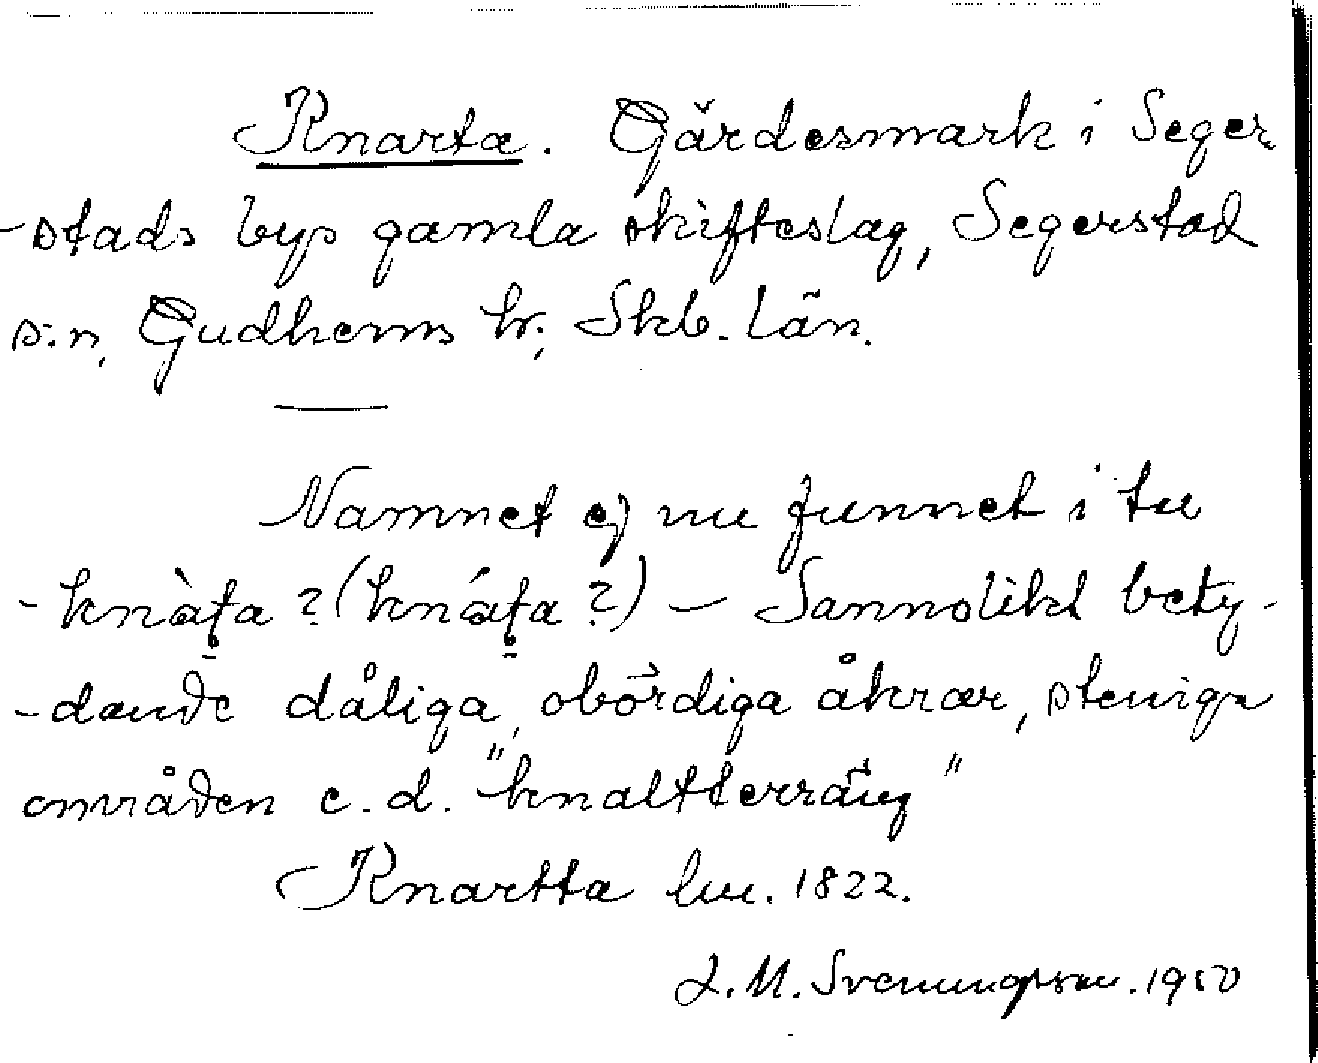 Knarta. Gärdesmark i Seger-
-stads bys gamla skifteslag, Segerstad
s:n, Gudhems hr; Skb. län.
Namnet ej nu funnet i
-knàta? (knáta?) – Sannolikt bety-
-dande dåliga, obördiga åkrar, steniga
områden e.d. "knaltterräng"
Knartta lm. 1822.
J. M. Svenungsson. 1950